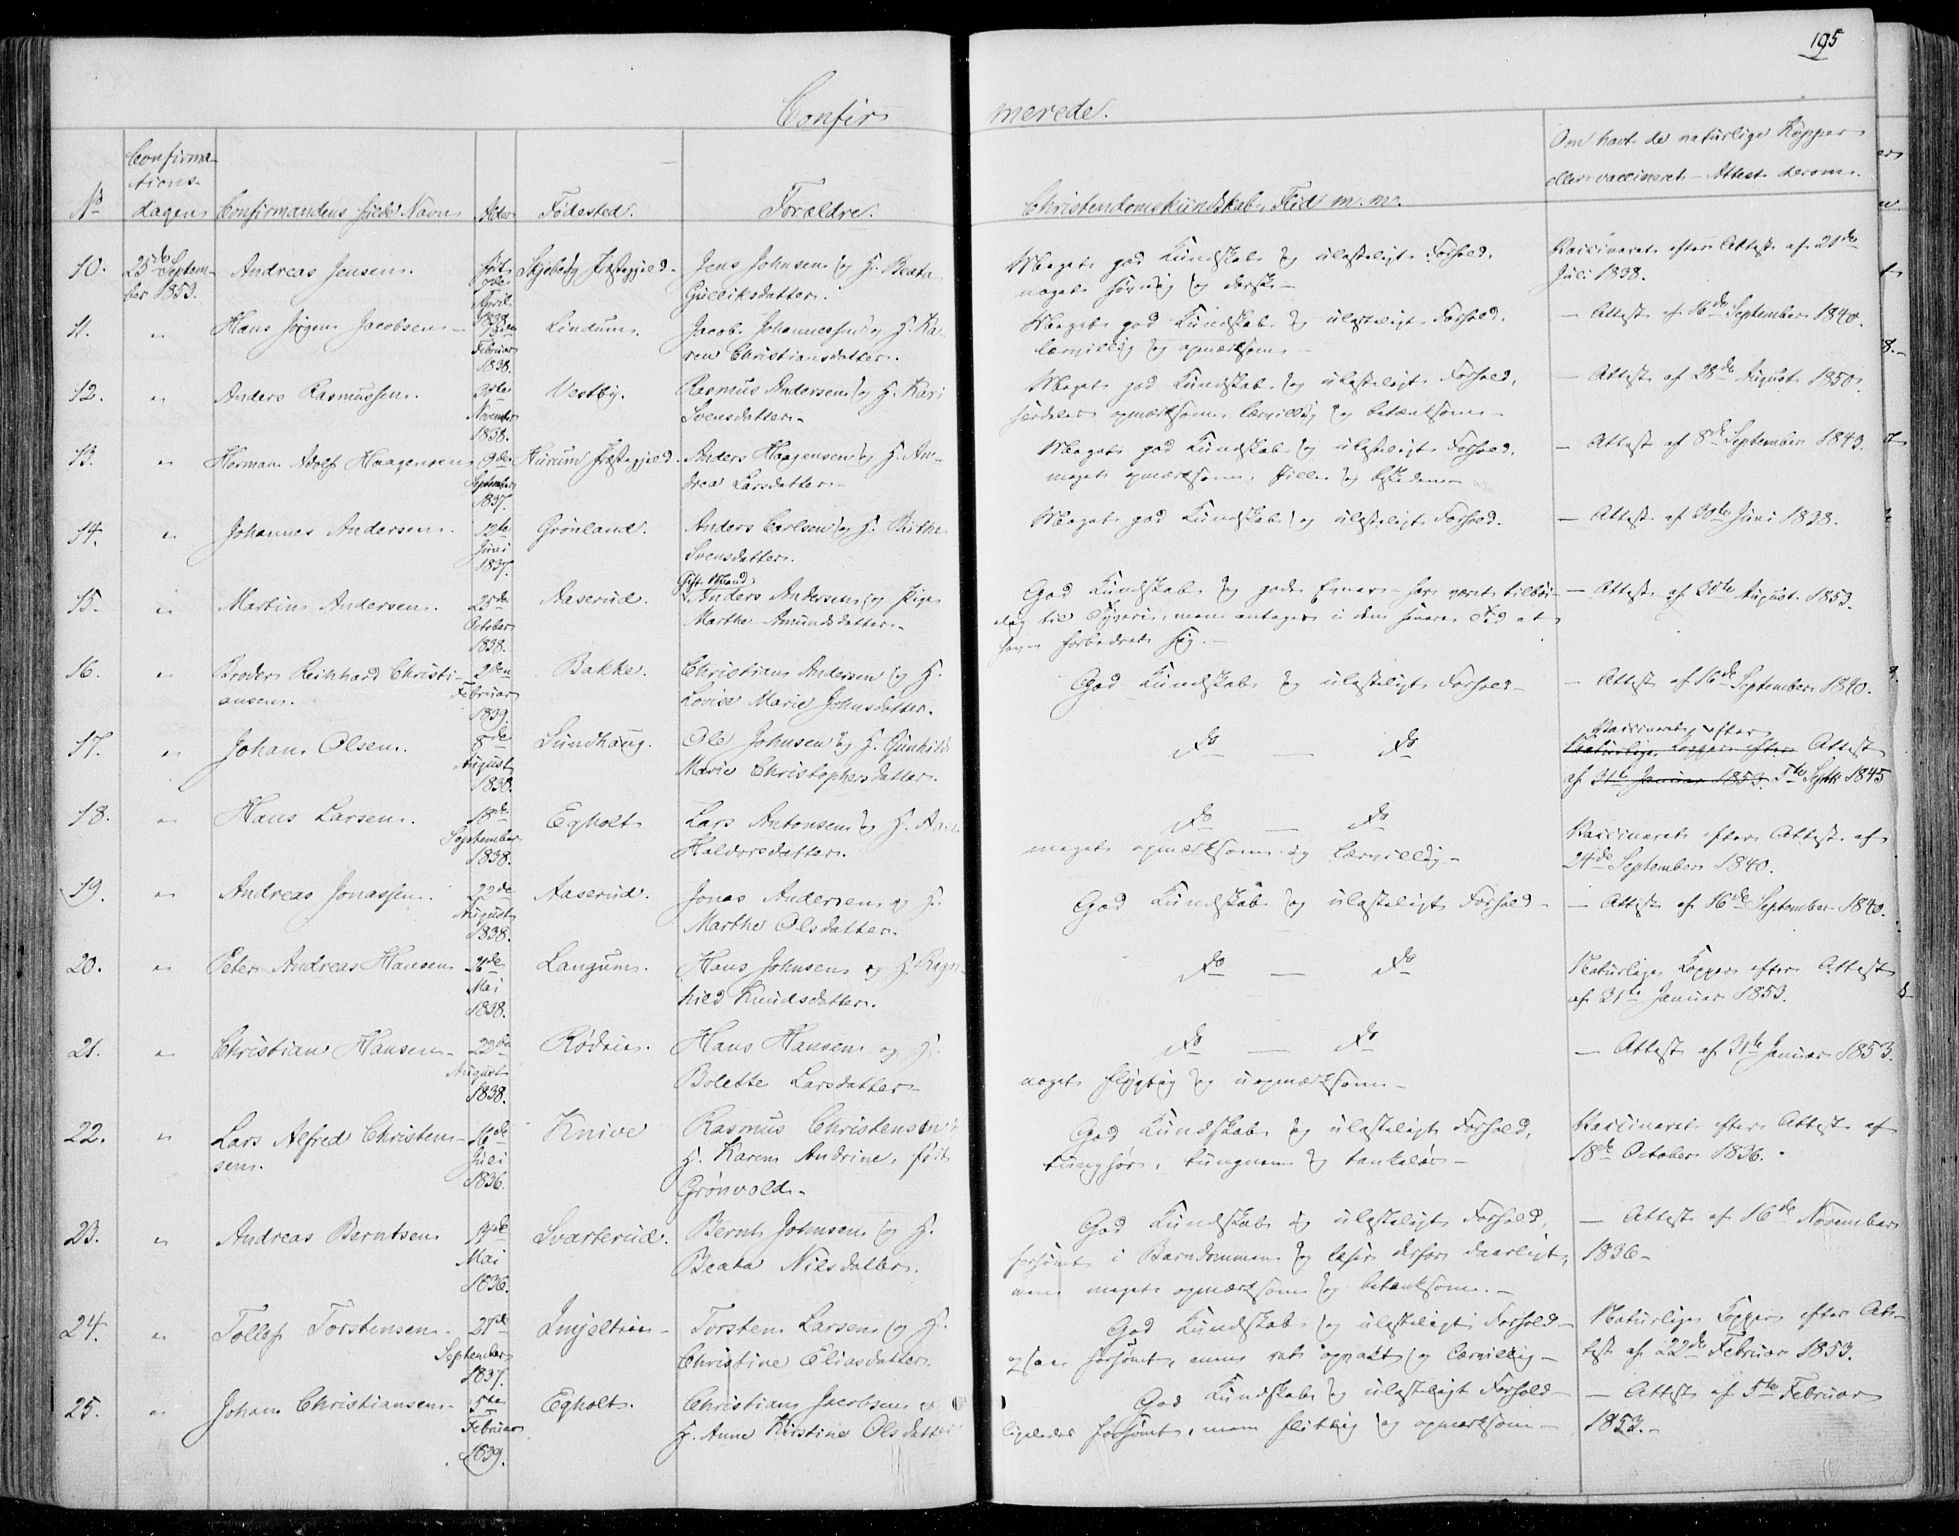 195
Confir
merede.
Confirma-
tions-
No
dagen
Confirmandens fulde Navn
Alder
Fødested.
Forældre.
Christendomskundskab, Flid m. m.
Om havt de naturlige Kopper
eller vaccineret. Attest derom.
10. 25de Septem-
ber 1853.
Andreas Jensen.
født
April
1838.
Skjeberg Præstegjeld.
Jens Johnsen og H. Beata
Gulliksdatter.
Meget god Kundskab og ulasteligt Forhold.
noget
Vaccineret efter Attest af 21de
Juli 1838.
11. "
Hans Jørgen Jacobsen
Februar
1838.
Lindum.
Jacob Johannessen og H. Ka-
ren Christiansdatter.
Meget god Kundskab og ulasteligt Forhold.
lærvillig og opmærksom
— Attest af 16de September 1840.
12. "
Anders Rasmussen.
November
1838.
Vestby.
Rasmus Andersen og H. Kari
Svensdatter.
Meget god Kundskab og ulasteligt Forhold,
særdeles opmærksom, lærvillig og betænksom
— Attest af 28de August 1850.
13. "
Herman Adolf Haagensen
9de
September
1837.
Hurum Præstegjeld.
Anders Haagensen og H. An-
drea Larsdatter.
Meget god Kundskab og ulasteligt Forhold,
meget opmærksom, stille og beskeden
— Attest af 8de September 1843.
14. "
Johannes Andersen.
12te
Juni
1837.
Grønland.
Anders Carlsen og H. Birthe
Svensdatter.
Meget god Kundskab og ulasteligt Forhold.
— Attest af 30te Juni 1838.
15. "
Martin Andersen.
25de
October
1838.
Aaserud.
Gift Mand
Anders Andersen og Pige
Marthe Amundsdatter.
God Kundskab og gode Evner – har været tilbøi-
elig til Tyveri, men antages i den senere Tid at
have forbedret sig.
— Attest af 30te August 1853.
16. "
Broder Reinhard Christi-
ansen.
2den
Februar
1839.
Bakke.
Christian Andersen og H.
Lovise Marie Johnsdatter.
God Kundskab og ulasteligt Forhold
— Attest af 16de September 1840.
17. "
Johan Olsen.
8de
August
1838.
Sundhaug.
Ole Johnsen og H. Gunhild
Marie Christophersdatter.
Do — Do
Vaccineret efter
Naturlige Kopper efter Attest
af 31te Januar 1853. 5te Septbr 1845
18. "
Hans Larsen.
18de
September
1838.
Egholt
Lars Antonsen og H. Anne
Haldorsdatter.
Do — Do
meget opmærksom og lærvillig
Vaccineret efter Attest af
24de September 1840.
19. "
Andreas Jonassen.
22de
August
1838.
Aaserud.
Jonas Andersen og H.
Marthe Olsdatter.
God Kundskab og ulasteligt Forhold
— Attest af 16de September 1840.
20. "
Peter Andreas Hansen
26de
Mai
1838.
Langum.
Hans Johnsen og H. Ragn
hild Knudsdatter.
Do — Do
Naturlige Kopper efter Attest
af 31te Januar 1853.
21. "
Christian Hansen
22de
August
1838.
Rødsie.
Hans Hansen og H.
Bolette Larsdatter
Do — Do
noget flygtig og uopmærksom
— Attest af 31te Januar 1853.
22. "
Lars Alfred Christen-
sen.
16de
Juli
1836.
Knive
Rasmus Christensen
H. Karen Andrine, født
Grønvold.
God Kundskab og ulasteligt Forhold,
tunghør, tungnem og tankeløs
Vaccineret efter Attest af
18de October 1836.
23. "
Andreas Berntsen
19de
Mai
1836.
Svarterud.
Bernt Johnsen og H.
Beata Nilsdatter.
God Kundskab og ulasteligt Forhold,
forsømt i Barndommen og læser derfor daarligt;
men meget opmærksom og betænksom.
— Attest af 16de November
1836
24. "
Tollef Torstensen.
21de
September
1837.
Torsten Larsen og H.
Christine Eliasdatter.
God Kundskab og ulasteligt Forhold
ogsaa forsømt, ret og lærvillig
Naturlige Kopper efter At-
test af 22de Februar 1853.
25. "
Johan Christiansen.
5te
Februar
1839.
Egholt.
Christian Jacobsen og
H. Anne Kirstine Olsdatter
God Kundskab og ulasteligt Forhold
ligeledes forsømt, men flittig og opmærksom
— Attest af 5te Februar
1853.